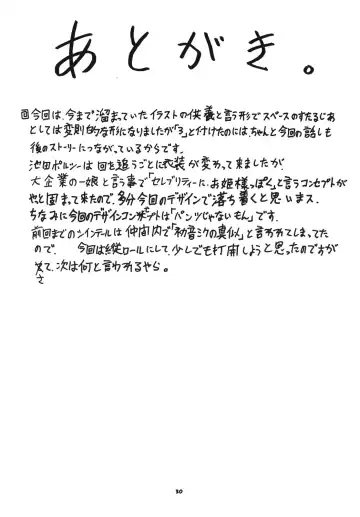 あとがき。
回今回は、今まで溜まっていたイラストの供養と言う形でスペースのすたるじあ
としては変則的な形になりましたが「3」と付けたのには、ちゃんと今回の話しも
後のストーリーにつながっているからです。
池田ポルシーは回を追うごとに衣装が変わって来ましたが
大企業の一娘と言う事で「セレブリティーに、お姫様っぽく」と言うコンセプトが
やと固まって来たので、多分今回のデザインで落ち着くと思いまス。
ちなみに今回のデザインコンセプトは「パンツじゃないもん」です。
前回までのツインテールは仲間内で「初音ミクの真似」と言われてしまってた
ので、今回は縦ロールにして、少しでも打開しようと思ったのですが
さて、次は何と言われるやら。
30